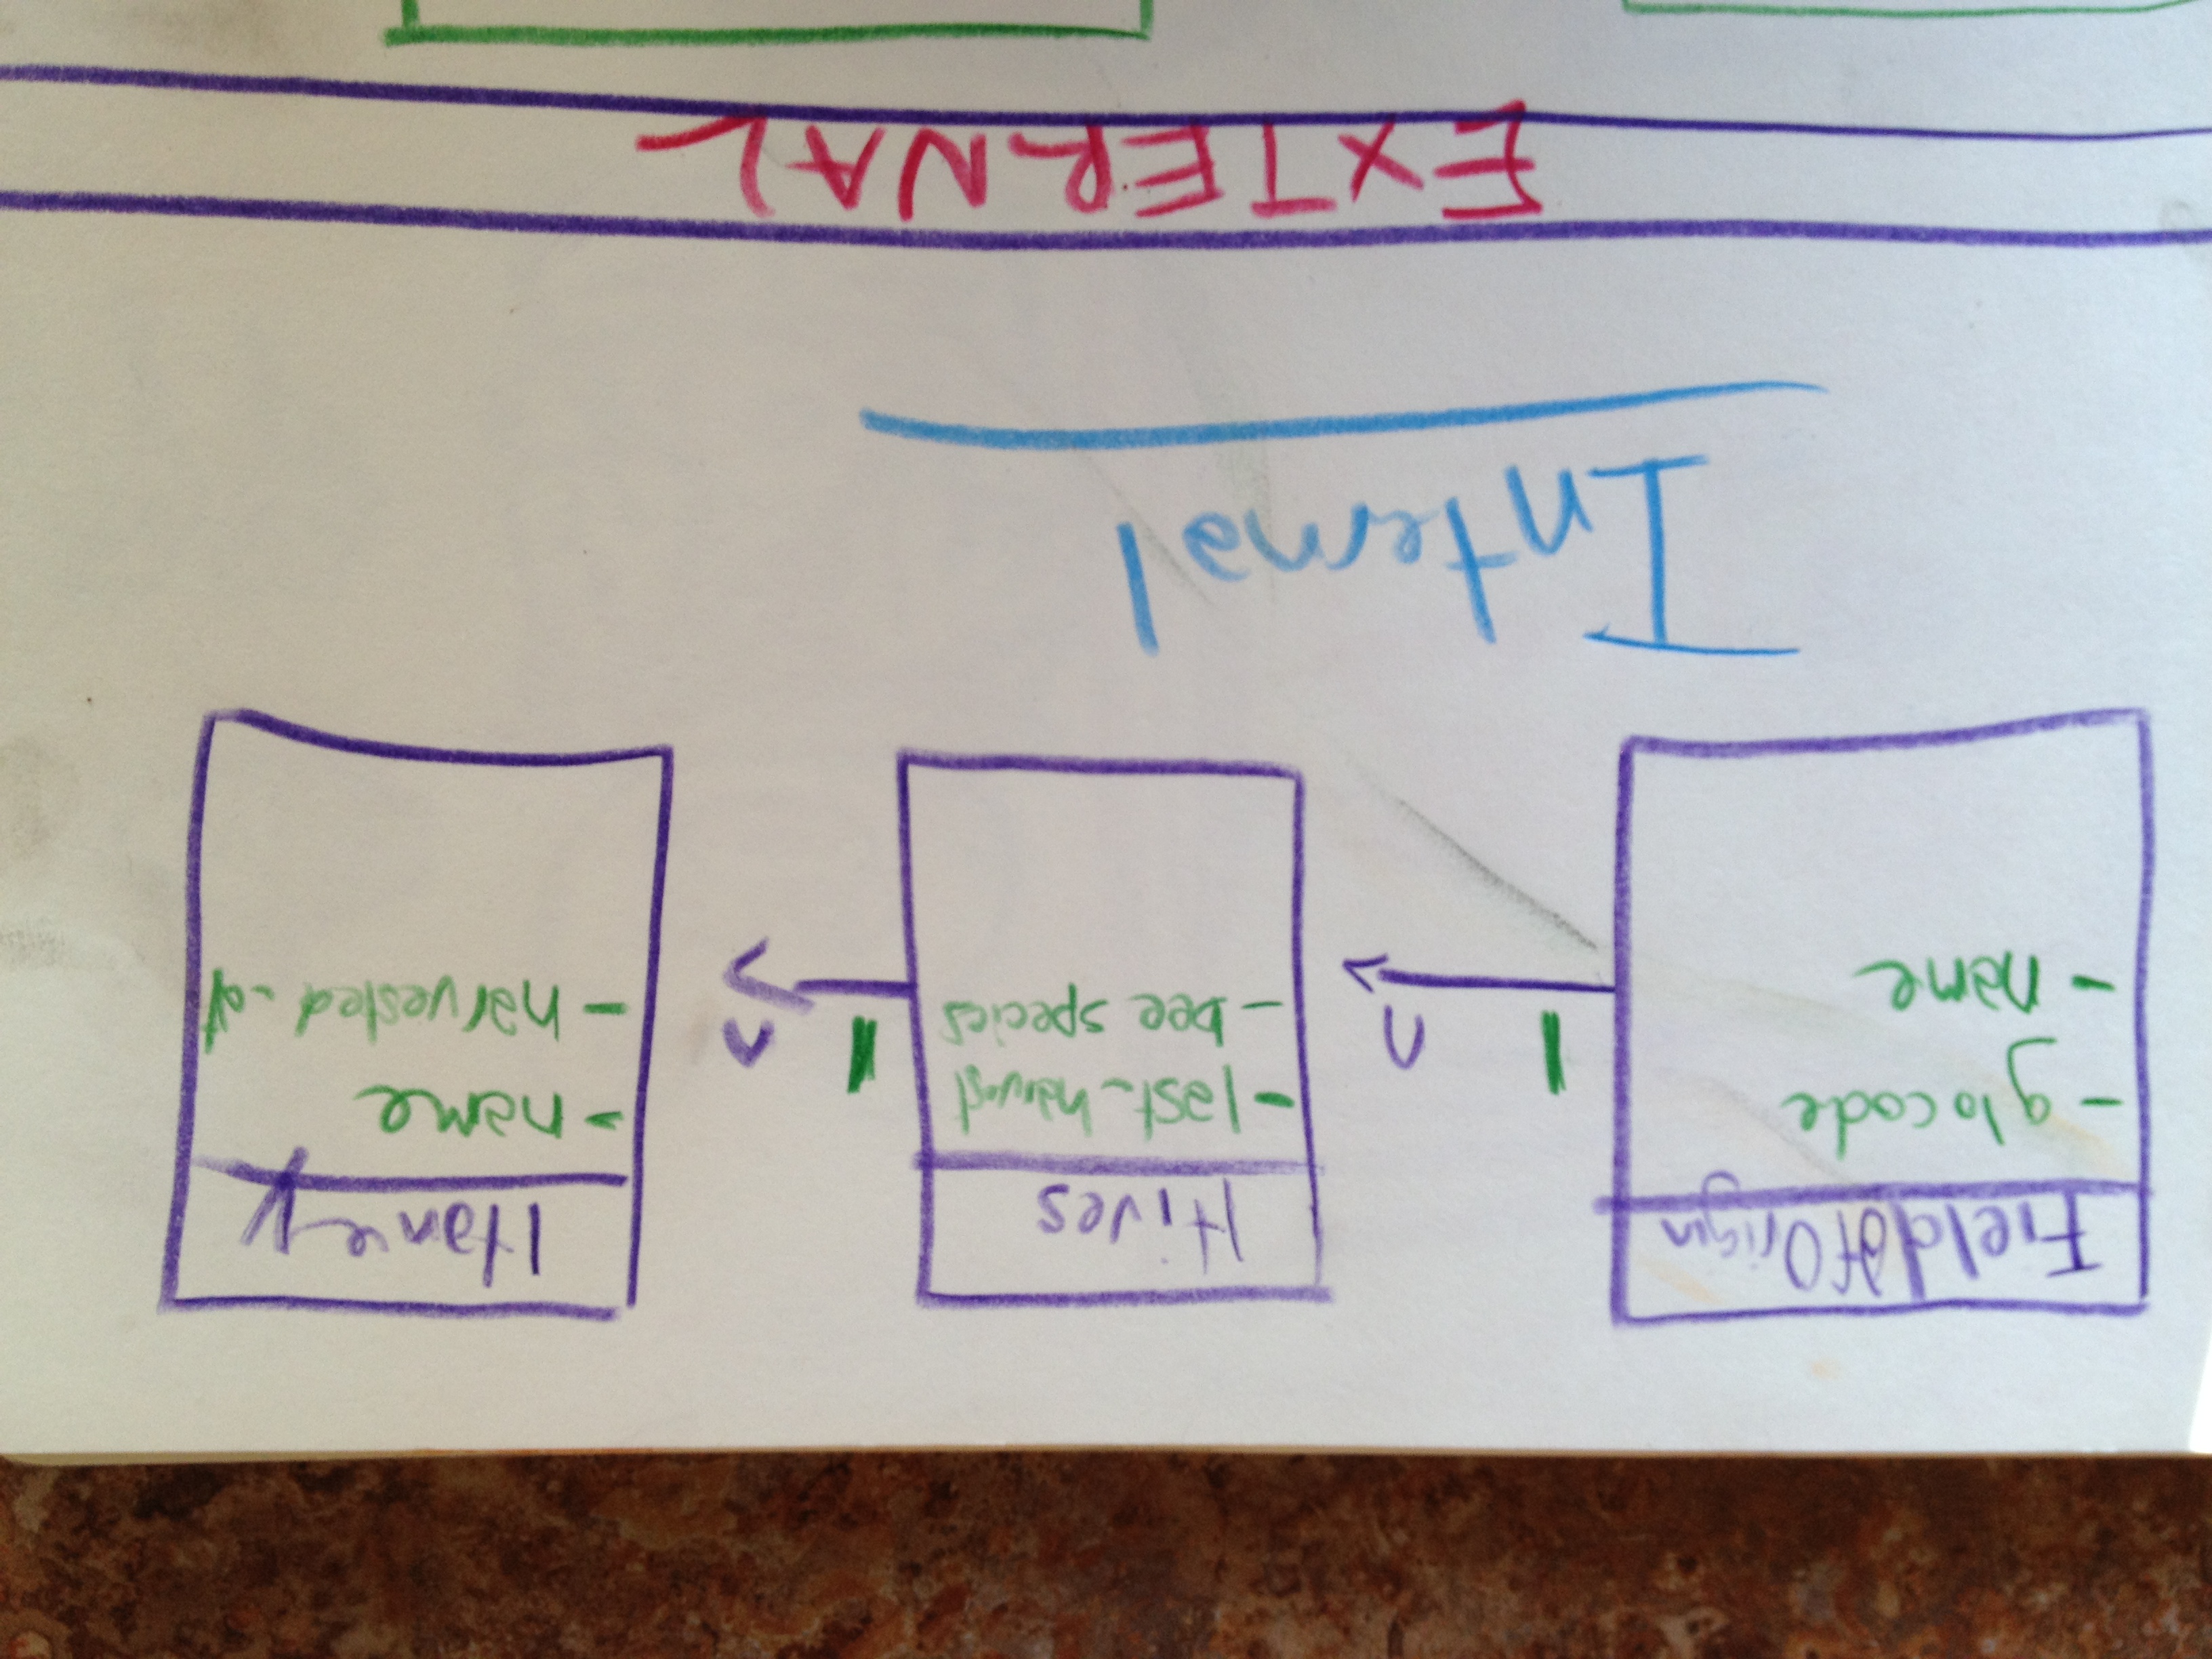 FieldOfOrigin
- glocode
- name
1 n
Hives
- last_harvest
- bee species
1 n
Honey
- name
- harvested_at
Internal
EXTERNAL